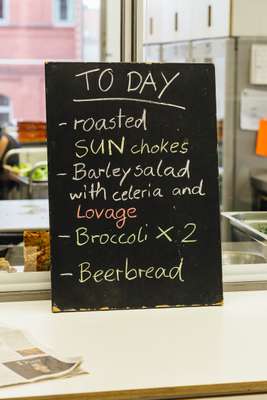 TO DAY
- roasted
SUN chokes
- Barley salad
with celeria and
Lovage
- Broccoli x 2
- Beerbread